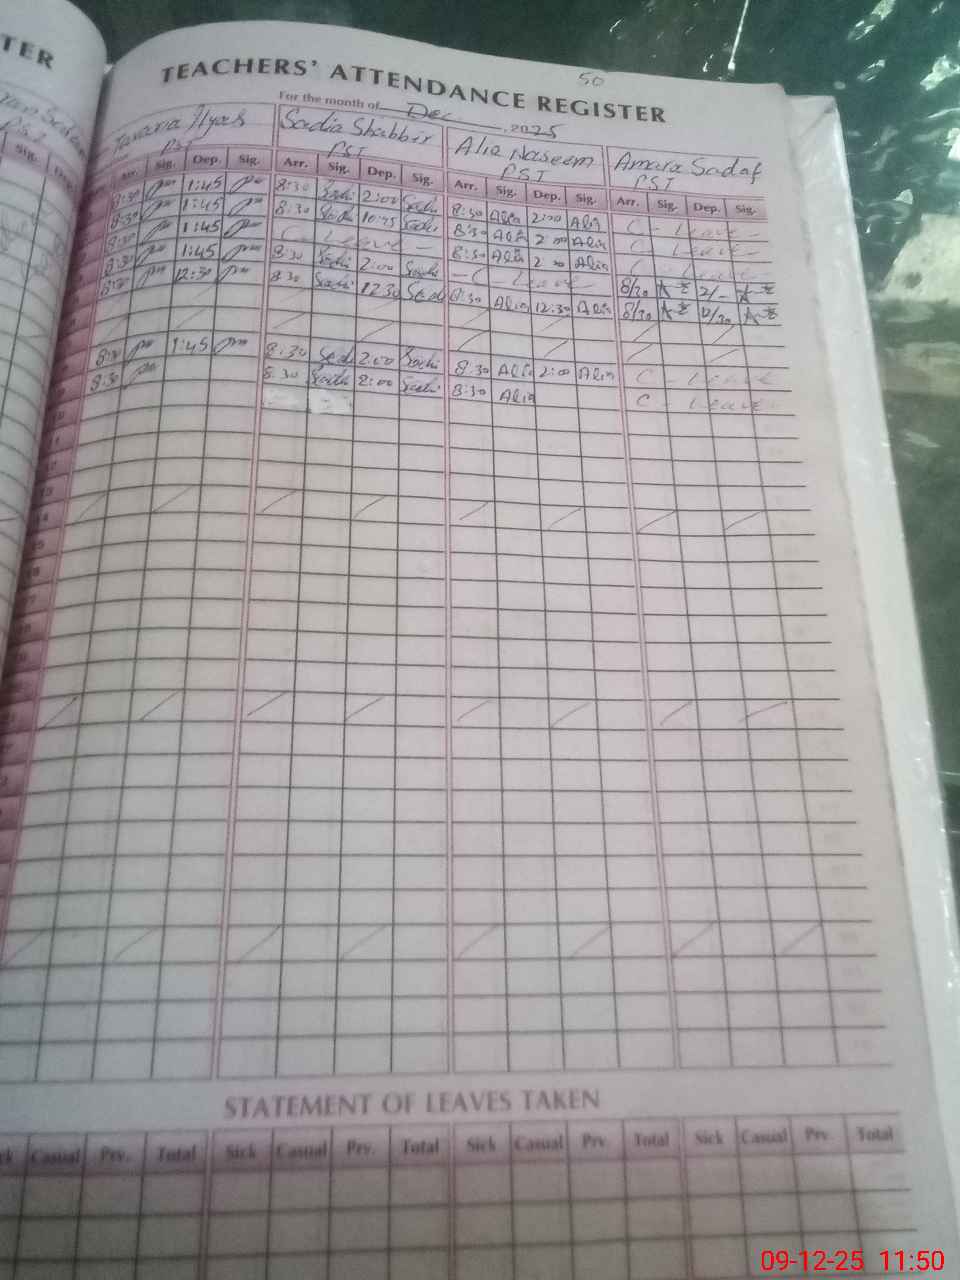 TER
50
TEACHERS' ATTENDANCE REGISTER
For the month of Dec 2025
Sadia Shabbir Alia Naseem Amara Sadaf
PST PST PST PST
Arr. Sig. Dep. Sig. Arr. Sig. Dep. Sig. Arr. Sig. Dep. Sig. Arr. Sig. Dep. Sig.
8:30 1:45 8:30 Sadi 2:00 Sadi 8:30 Alia 2:00 Alia C - Leave -
8:30 1:45 8:30 Sadi 10:45 Sadi 8:30 Alia 2:00 Alia C - Leave -
8:30 1:45 C - Leave - 8:30 Alia 2:00 Alia C - Leave -
8:30 1:45 8:30 Sadi 2:00 Sadi - C - Leave - 8/30 2/-
8:30 12:30 8:30 Sadi 12:30 Sadi 8:30 Alia 12:30 Alia 8/30 12/30
8:30 1:45 8:30 Sadi 2:00 Sadi 8:30 Alia 2:00 Alia C - Leave
8:30 8:30 Sadi 2:00 Sadi 8:30 Alia C - Leave -
STATEMENT OF LEAVES TAKEN
Casual Prv. Total Sick Casual Prv. Total Sick Casual Prv. Total Sick Casual Prv. Total
09-12-25 11:50